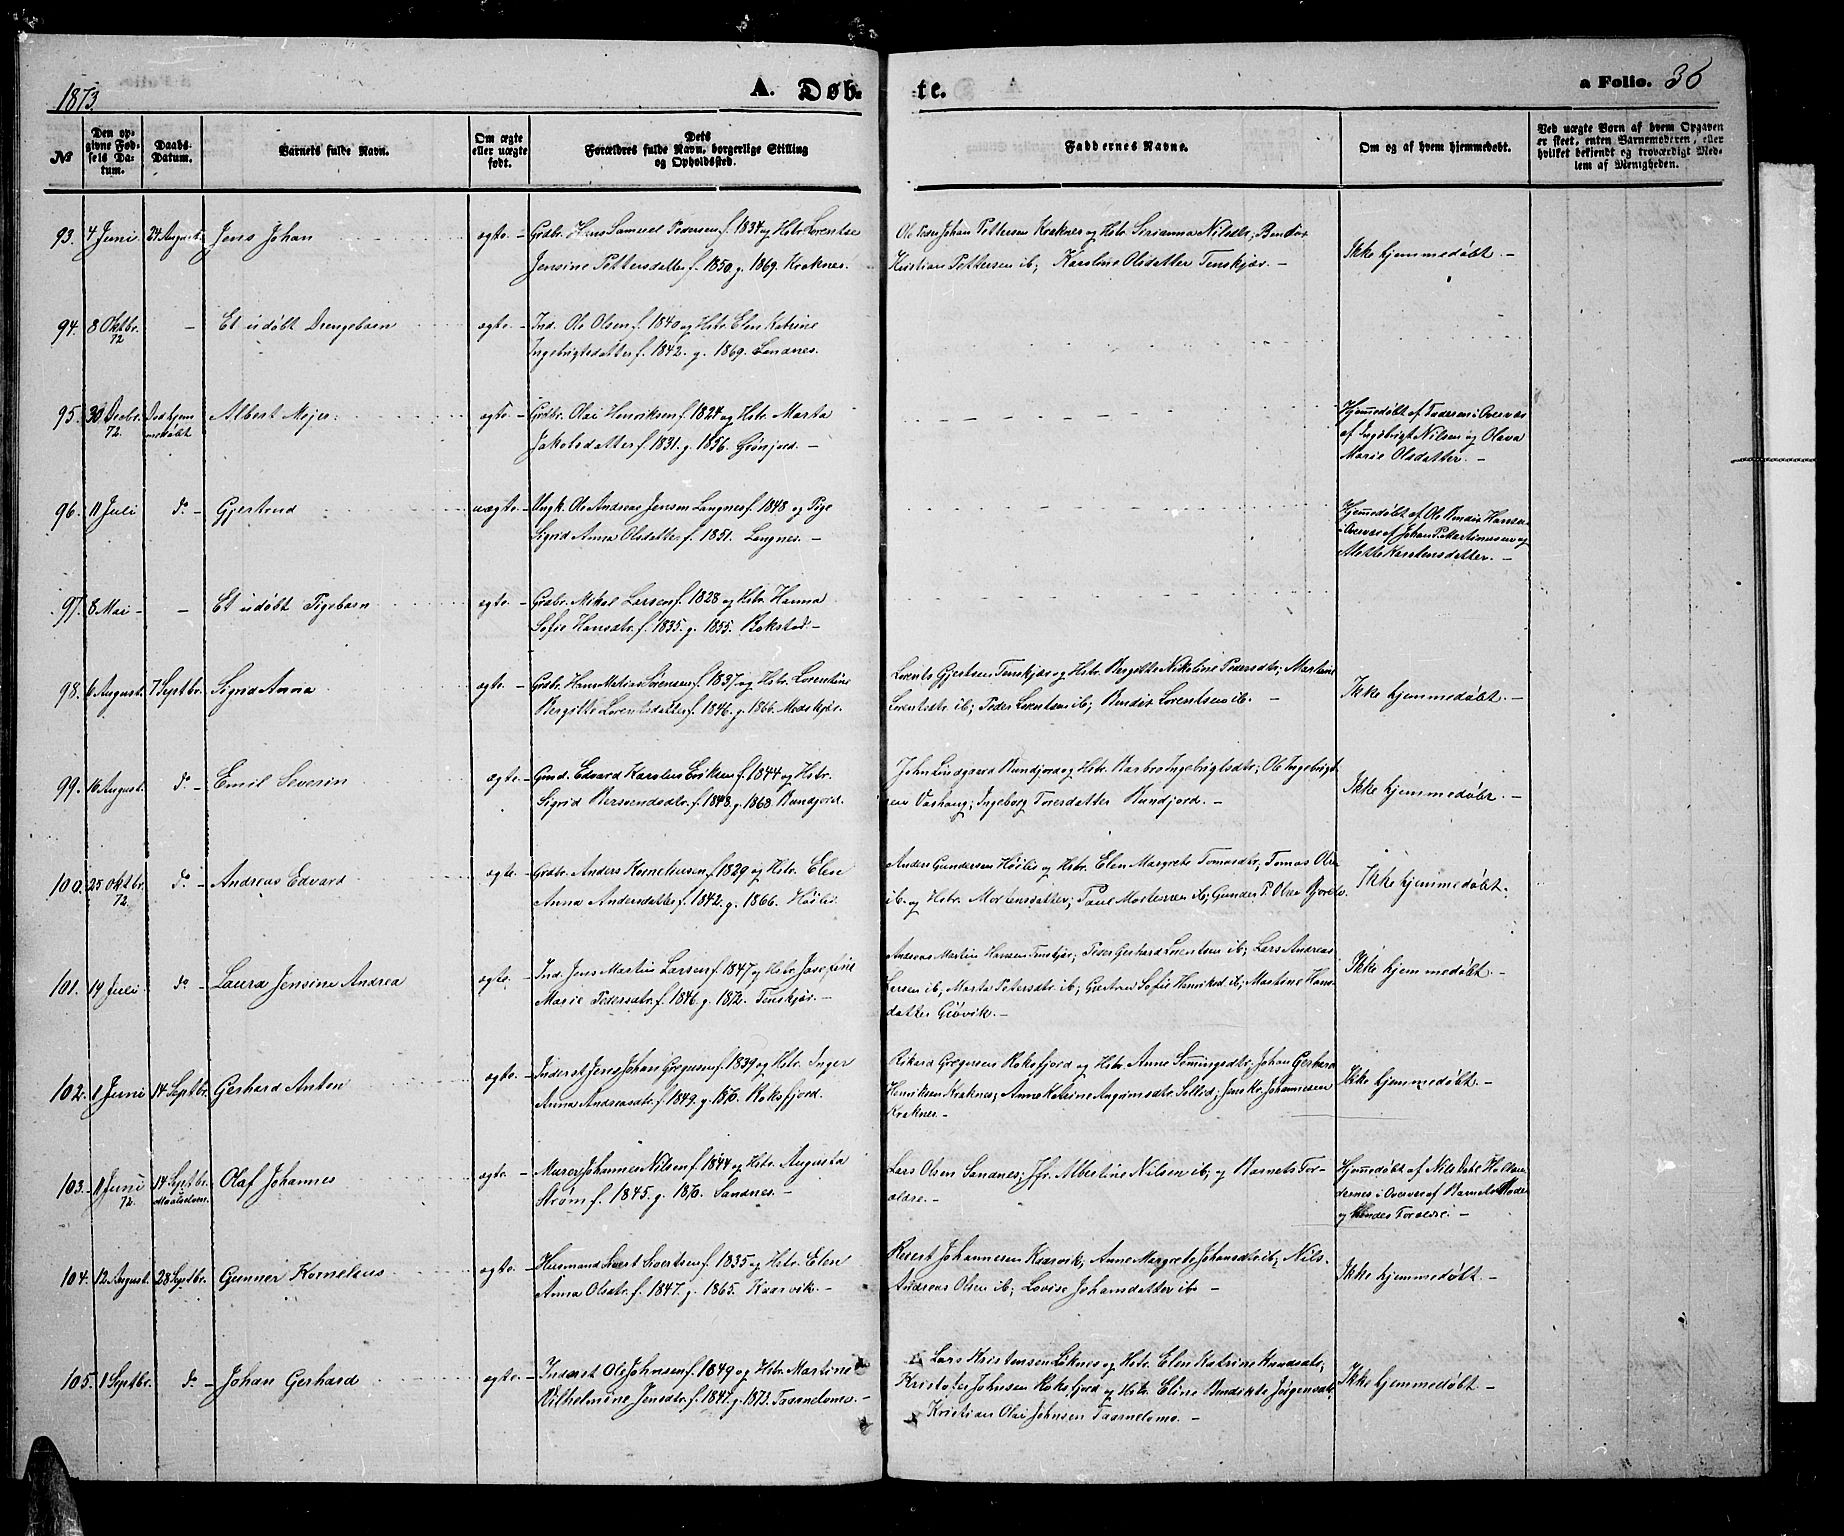 1873.
A. Døb-
te.
a Folio. 36
No
Den opgivne Fødsels Datum.
Daabs-Datum.
Barnets fulde Navn.
Om ægte eller uægte født.
Dets Forældres fulde Navn, borgerlige Stilling og Opholdssted.
Faddernes Navne.
Om og af hvem hjemmedøbt.
Ved uægte Born af hvem Opgaven er skeet, enten Barnemoderen, eller hvilket bekjendt og troværdigt Medlem af Menigheden.
93. 4 Juni 24 August. Jens Johan ægte. Grdbr. Hans Samuel Pedersen f. 1834 og Hstr. Lorentse
Jensine Pettersdatter f. 1850. g. 1869. Kraknes.
Ole Peder Johan Pettersen Kraknes og Hstr. Sirianna Nilsdtr,
Kristian Pettersen ib; Karoline Olsdatter Tenskjær. –
Ikke hjemmedøbt. –
94. 8 Oktbr. 72 – Et udøbt Drengebarn ægte. Ind. Ole Olsen f. 1840 og Hstr. Elen Katrine
Ingebrigtsdatter f. 1842. g. 1869. Sandnes.
95. 30 Decbr. 72. Død hjemmedøbt Albert Mejer. ægte. Grdbr. Olai Henriksen f. 1824 og Hstr. Marta
Jakobsdatter f. 1831. g. 1856. Grønjord. –
Hjemmedøbt af Faderen i Overvær
af Ingebrigt Nilsen og Olava
Marie Olsdatter. –
96. 11 Juli do – Gjertrud uægte. Ungk. Ole Andreas Jensen Langnes f. 1848 og Pige
Sigrid Anna Olsdatter f. 1851. Langnes. –
Hjemmedøbt af Ole Bendix Hansen
i Overvær af Johan P. Martinusen og
Mette Karstensdatter. –
97. 8 Mai – – Et udøbt Pigebarn ægte. Grdbr. Mikal Larsen f. 1828 og Hstr. Hanna
Sofie Hansdtr. f. 1835. g. 1855. Bakstad –
98. 6 August. 7 Septbr. Sigrid Anna ægte. Grdbr. Hans Matias Sørensen f. 1837 og Hstr. Lorentine
Bergitte Lorentsdatter f. 1846. g. 1866.
Lorents Gjertsen Tenskjær og Hstr. Bergitte Nikoline Pedersdtr; Martine
Lorentsdtr. ib; Peder Lorentsen ib; Bendix Lorentsen ib. –
Ikke hjemmedøbt. –
99. 16 August. do – Emil Severin ægte. Grmd. Edvard Karolus Eriksen f. 1844 og Hstr.
Sigrid Bersvendsdtr. f. 1848. g. 1868 Bundjord.
John Lindgaard Bundjord og Hstr. Barbro Ingebrigtsdtr; Ole Ingebrigt-
sen Vashaug; Ingeborg Toresdatter Bundjord. –
Ikke hjemmedøbt. –
100. 25 Oktbr. 72 do – Andreas Edvard ægte. Grdbr. Anders Korneliusen f. 1829 og Hstr. Elen
Anna Andersdatter f. 1842. g. 1866. Høilie.
Anders Gundersen Høilie og Hstr. Elen Margrete Tomasdtr; Tomas Olsen
ib. og Hstr. Mortensdatter; Paul Mortensen ib; Gunder P. Olsen
Ikke hjemmedøbt.
101. 19 Juli do – Laura Jensine Andrea ægte. Ind. Jens Martin Larsen f. 1847 og Hstr. Josefine
Marie Pedersdtr. f. 1846. g. 1872. Tenskjær. –
Andreas Martin Hansen Tenskjær; Peder Gerhard Lorentsen ib; Lars Andreas
Larsen ib; Marta Petersdtr. ib; Gjertrud Sofie Henriksd. ib; Martine Hans-
datter Gjøvik. –
Ikke hjemmedøbt. –
102. 1 Juni 14 Septbr. Gerhard Anton ægte. Inderst Jens Johan Gregusen f. 1839 og Hstr. Inger
Anna Andreasdtr. f. 1849. g. 1870. Roksfjord.
Rikard Gregusen Roksfjord og Hstr. Anne Simmingsdtr; Johan Gerhard
Henriksen Kraknes; Anne Katrine Angrimsdtr. Sollid; Jens Kr. Johannesen
Kraknes. –
Ikke hjemmedøbt. –
103. 11 Juni 72. 14 Septbr. Maalsdom. Olaf Johannes ægte. Murer Johannes Nilsen f. 1844 og Hstr. Augusta
Strøm f. 1845. g. 1870. Sandnes. –
Lars Olsen Sandnes; Jfr. Albertine Nilsen ib; og Barnets For-
ældre. –
Hjemmedøbt af Nils Dahl
i Overvær af Barnets Moder
og hendes Forældre. –
104. 12 August. 28 Septbr. Gunner Kornelius ægte. Husmand Sivert Sivertsen f. 1835 og Hstr. Elen
Anna Olsdtr. f. 1847. g. 1865. Kvarvik. –
Johannesen Kvarvik; Anne Margrete Johansdtr ib; Nils
Andreas Olsen ib; Lovise Johansdatter ib. –
Ikke hjemmedøbt. –
105. 1 Septbr. do – Johan Gerhard ægte. Inderst Ole Johnsen f. 1849 og Hstr. Martine
Vilhelmine Jensdtr. f. 1847. g. 1873. –
Lars Kristensen Løknes og Hstr. Elen Katrine Knudsdtr;
Kristofer Johnsen Roksfjord og Hstr. Eline Bendikte Jørgensdtr.
Kristian Olai Johnsen –
Ikke hjemmedøbt –